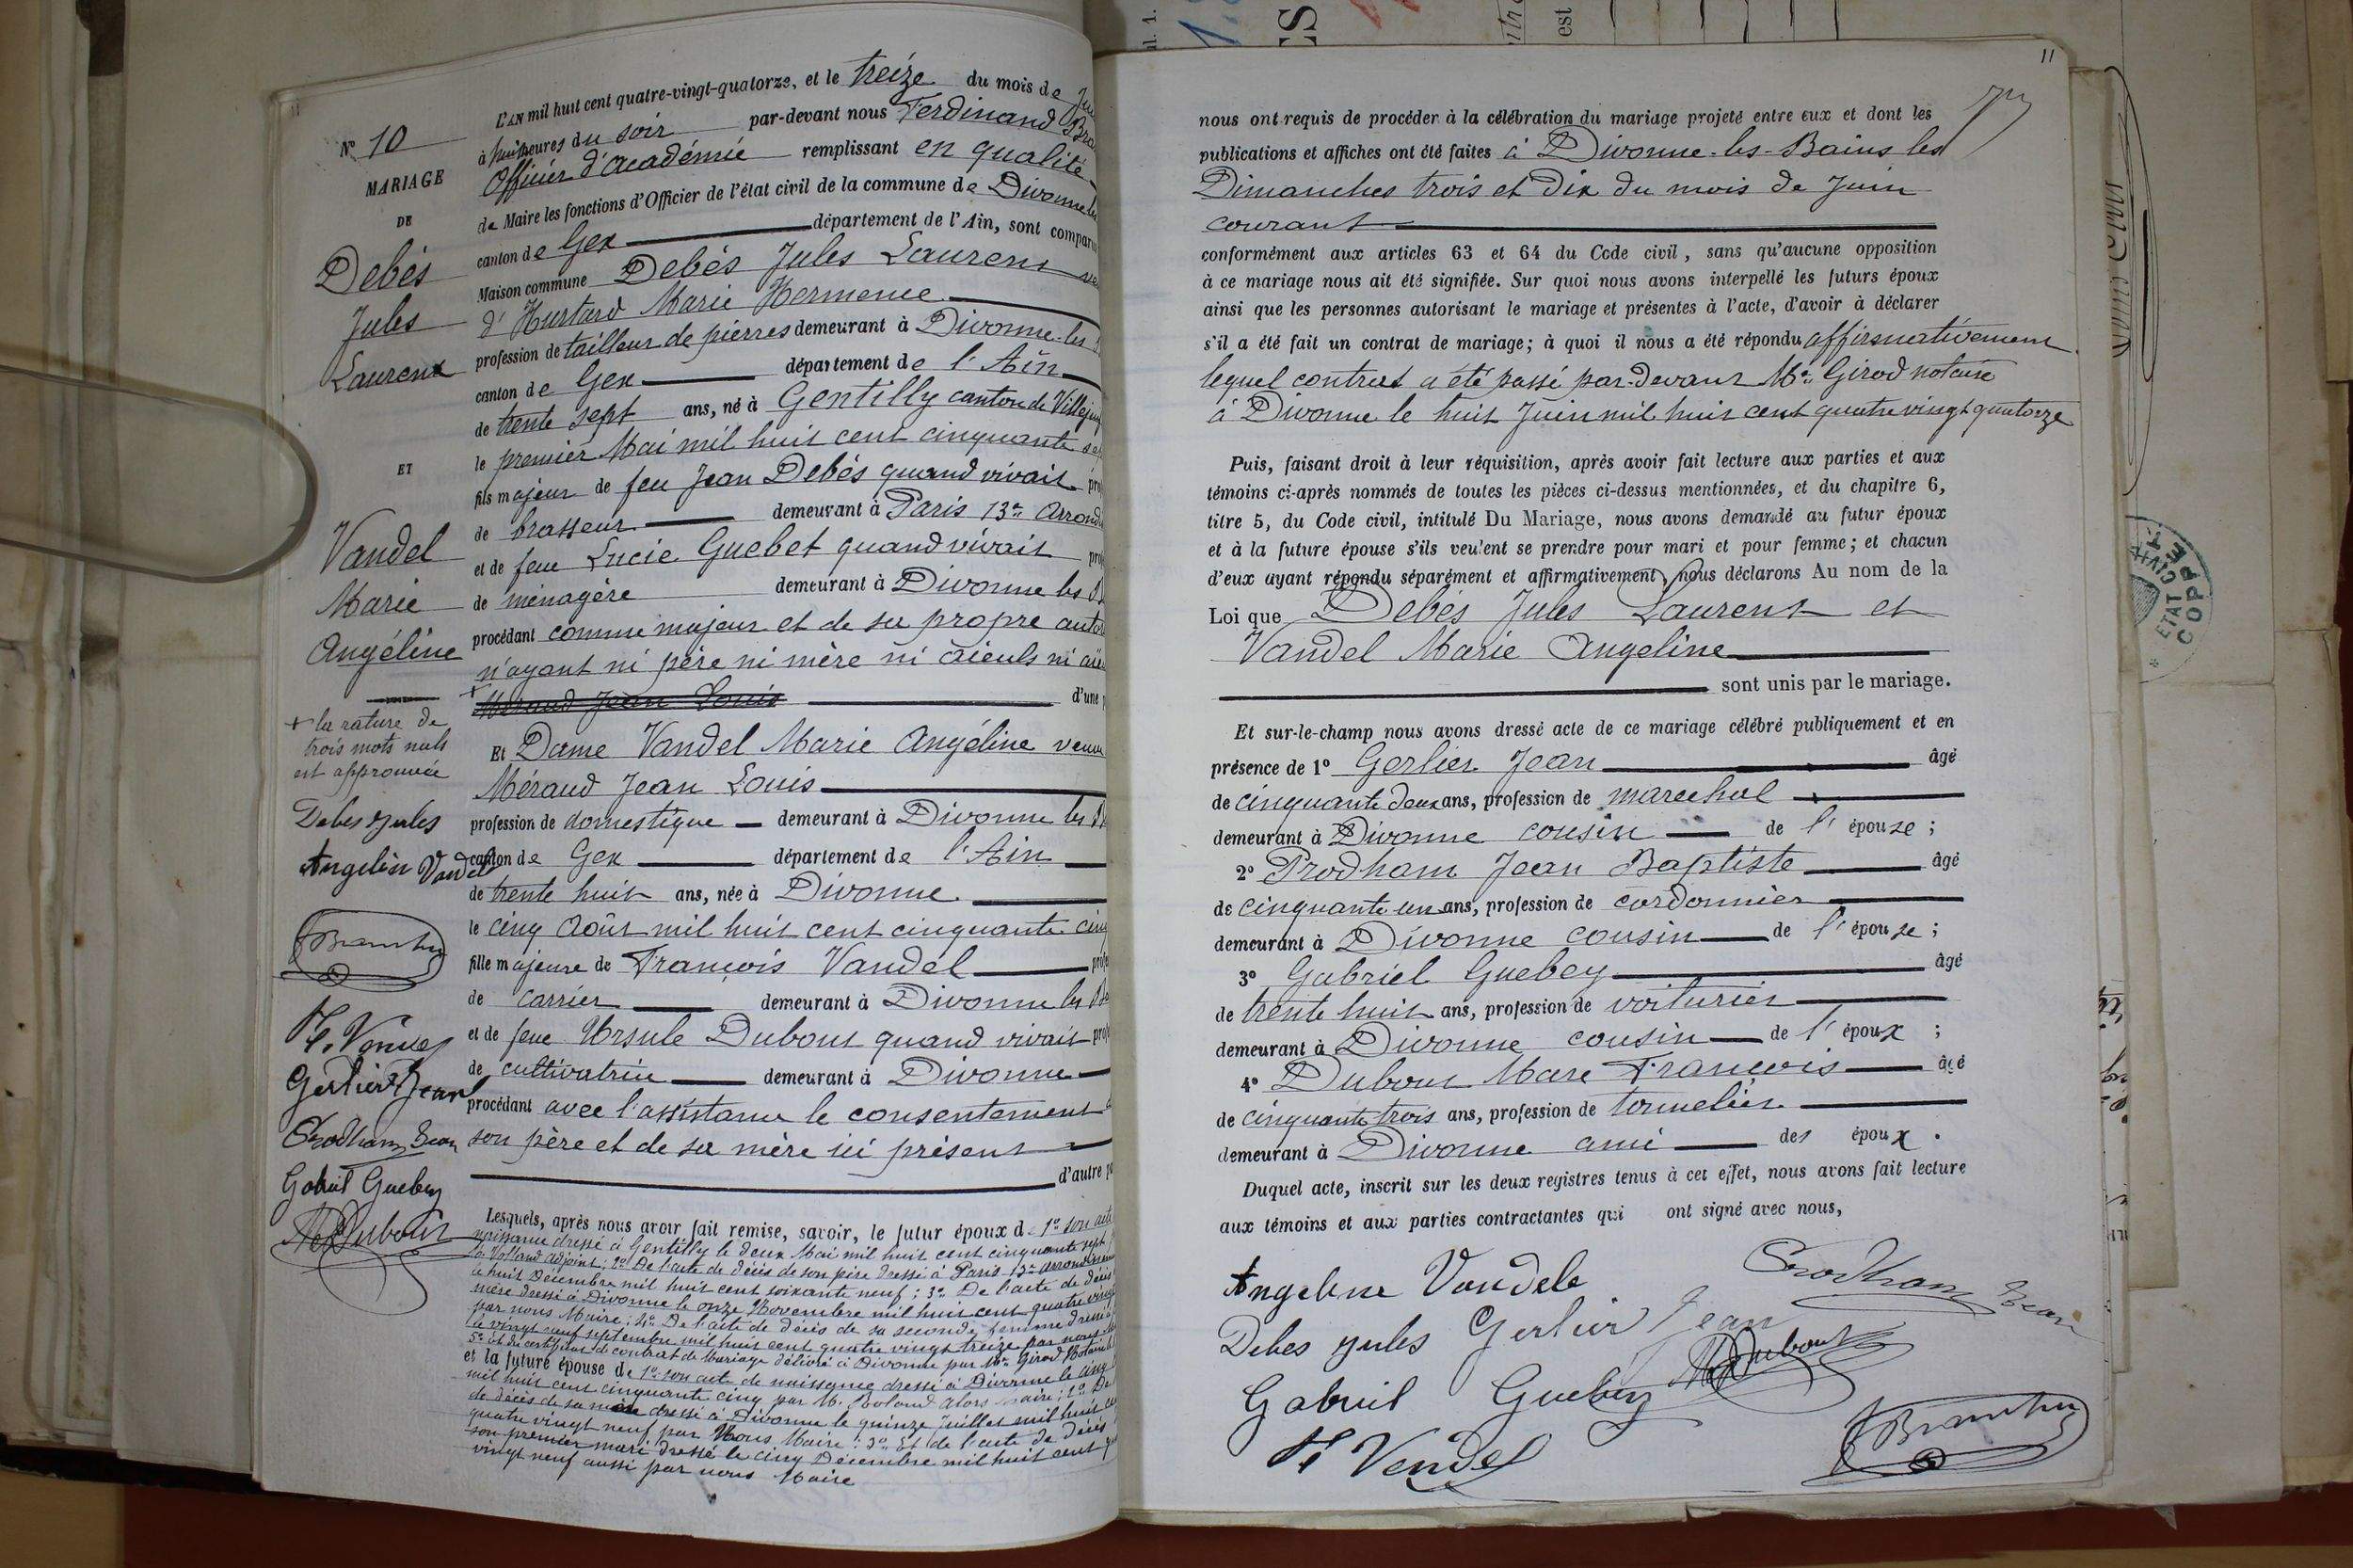 L'AN mil huit cent quatre-vingt-quatorze, et le treize du mois de
à huit heures du soir par-devant nous Ferdinand
Officier d'académie remplissant en qualité
de Maire les fonctions d'Officier de l'état civil de la commune de Divonne
canton de Gex département de l'Ain, sont
Maison commune Debés Jules Laurent
d'Hustard Marie Hermence
profession de tailleur de pierres demeurant à Divonne-les
canton de Gex département de l'Ain
de trente sept ans, né à Gentilly canton de
le premier Mai mil huit cent cinquante
fils majeur de feu Jean Debés quand vivait
de brasseur demeurant à Paris 13e
et de feue Lucie Guebet quand vivait
de ménagère demeurant à Divonne les
procédant comme majeur et de sa propre
n'ayant ni père ni mère ni aïeuls ni
+ Méraud Jean Louis d'une
Et Dame Vandel Marie Angéline
Méraud Jean Louis
profession de domestique demeurant à Divonne les
canton de Gex département de l'Ain
de trente huit ans, née à Divonne
le cinq Août mil huit cent cinquante
fille majeure de François Vandel
de carrier demeurant à Divonne les
et de feue Ursule Dubout quand vivait
de cultivatrice demeurant à Divonne
procédant avec l'assistance le consentement
son père et de sa mère ici présent
d'autre
Lesquels, après nous avoir fait remise, savoir, le futur époux de 1° son
naissance dressé à Gentilly le deux Mai mil huit cent cinquante sept
adjoint; 2° De l'acte de décès de son père dressé à Paris 13e
le huit Décembre mil huit cent soixante neuf; 3° De l'acte de décès
mère dressé à Divonne le onze Novembre mil huit cent quatre
par nous Maire; 4° De l'acte de décès de sa seconde femme dressé
le vingt neuf septembre mil huit cent quatre vingt treize par nous
5° Et du certificat de contrat de Mariage délivré à Divonne par Me Girod
et la future épouse de 1° son acte de naissance dressé à Divonne le cinq
mil huit cent cinquante cinq par M. Roland alors Maire; 2° De
de décès de sa mère dressé à Divonne le quinze Juillet mil huit
quatre vingt neuf par Nous Maire; 3° Et de l'acte de décès
son premier mari dressé le cinq Décembre mil huit cent
vingt neuf aussi par nous Maire
N° 10
MARIAGE
DE
Debés
Jules
Laurent
ET
Vandel
Marie
Angéline
+ la rature de
trois mots nuls
est approuvée
Debes Jules
Angelin Vandel
Gerlier Jean
Prodham Jean
Gabriel Guebey
Dubout
11
nous ont requis de procéder à la célébration du mariage projeté entre eux et dont les
publications et affiches ont été faites à Divonne-les-Bains les
Dimanches trois et dix du mois de Juin
courant
conformément aux articles 63 et 64 du Code civil, sans qu'aucune opposition
à ce mariage nous ait été signifiée. Sur quoi nous avons interpellé les futurs époux
ainsi que les personnes autorisant le mariage et présentes à l'acte, d'avoir à déclarer
s'il a été fait un contrat de mariage; à quoi il nous a été répondu affirmativement
lequel contrat a été passé par-devant Me Girod notaire
à Divonne le huit Juin mil huit cent quatre vingt quatorze
Puis, faisant droit à leur réquisition, après avoir fait lecture aux parties et aux
témoins ci-après nommés de toutes les pièces ci-dessus mentionnées, et du chapitre 6,
titre 5, du Code civil, intitulé Du Mariage, nous avons demandé au futur époux
et à la future épouse s'ils veulent se prendre pour mari et pour femme; et chacun
d'eux ayant répondu séparément et affirmativement, nous déclarons Au nom de la
Loi que Debés Jules Laurent et
Vandel Marie Angeline
sont unis par le mariage.
Et sur-le-champ nous avons dressé acte de ce mariage célébré publiquement et en
présence de 1° Gerlier Jean âgé
de cinquante deux ans, profession de marechal
demeurant à Divonne cousin de l'épouse;
2° Prodham Jean Baptiste âgé
de cinquante un ans, profession de cordonnier
demeurant à Divonne cousin de l'épouse;
3° Gabriel Guebey âgé
de trente huit ans, profession de voiturier
demeurant à Divonne cousin de l'époux;
4° Dubout Marc François âgé
de cinquante trois ans, profession de tonnelier
demeurant à Divonne ami des époux.
Duquel acte, inscrit sur les deux registres tenus à cet effet, nous avons fait lecture
aux témoins et aux parties contractantes qui ont signé avec nous,
Angeline Vandele
Prodham Jean
Debes Jules
Gerlier Jean
Dubout
Gabriel Guebey
F Vendel
ETAT CIVIL
COPPET